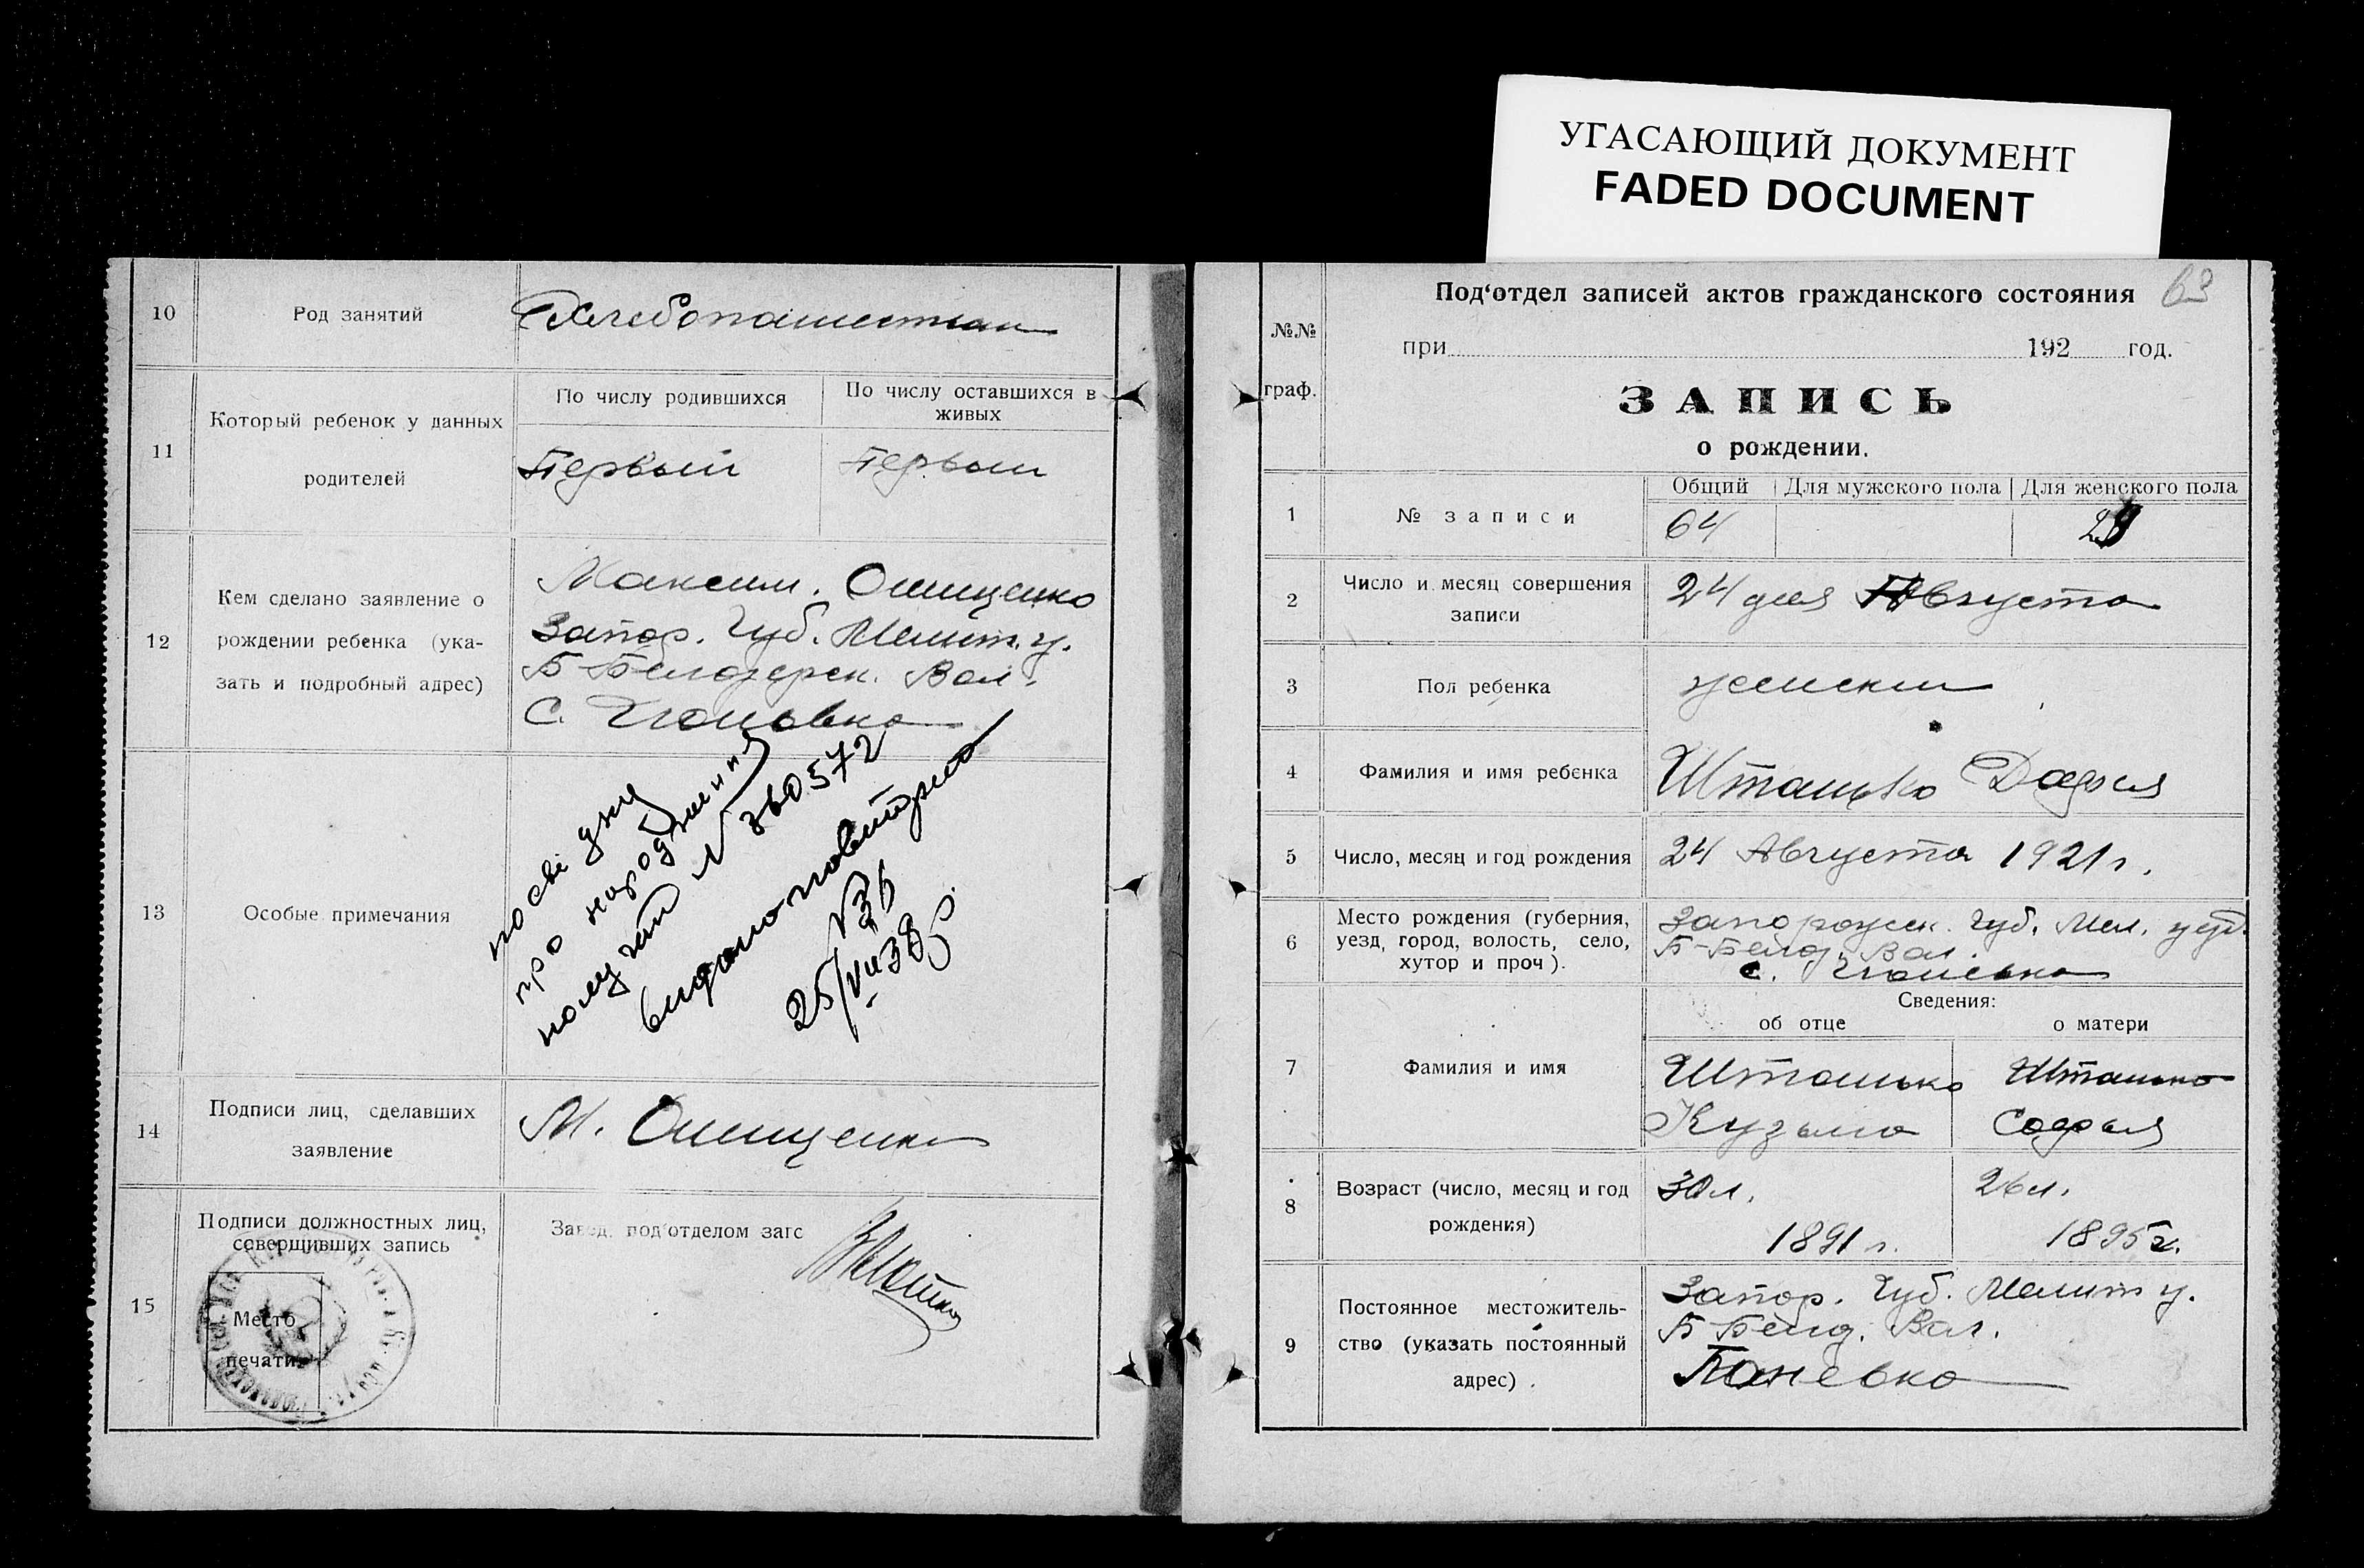 УГАСАЮЩИЙ ДОКУМЕНТ
FADED DOCUMENT
10
Род занятий
Хлебопашество
11
Который ребенок у данных
родителей
По числу родившихся
По числу оставшихся в
живых
Первый
Первый
12
Кем сделано заявление о
рождении ребенка (ука-
зать и подробный адрес)
Максим. Онищенко
Запор. Губ. Мелит. у.
Б-Белозерск. Вол.
С.
13
Особые примечания
посвідку
про народження
получат № 360572
видано повиторно
25/VII 38 р.
14
Подписи лиц, сделавших
заявление
М. Онищенко
15
Подписи должностных лиц,
совершивших запись
Место
печати
Завед. под'отделом загс
63
№№
граф.
Под'отдел записей актов гражданского состояния
при 192 год.
ЗАПИСЬ
о рождении.
1
№ записи
Общий
Для мужского пола
Для женского пола
64
2
Число и месяц совершения
записи
24 дня Августа
3
Пол ребенка
женский
4
Фамилия и имя ребенка
Штанько
5
Число, месяц и год рождения
24 Августа 1921 г.
6
Место рождения (губерния,
уезд, город, волость, село,
хутор и проч).
Запорожск. Губ. Мел. уезд.
Б-Белоз. Вол.
с.
Сведения:
об отце
о матери
7
Фамилия и имя
Штанько
Кузьма
Штанько
Софья
8
Возраст (число, месяц и год
рождения)
30 л.
1891 г.
26 л.
1895 г.
9
Постоянное местожитель-
ство (указать постоянный
адрес).
Запор. Губ. Мелит у.
Б Белоз. Вол.